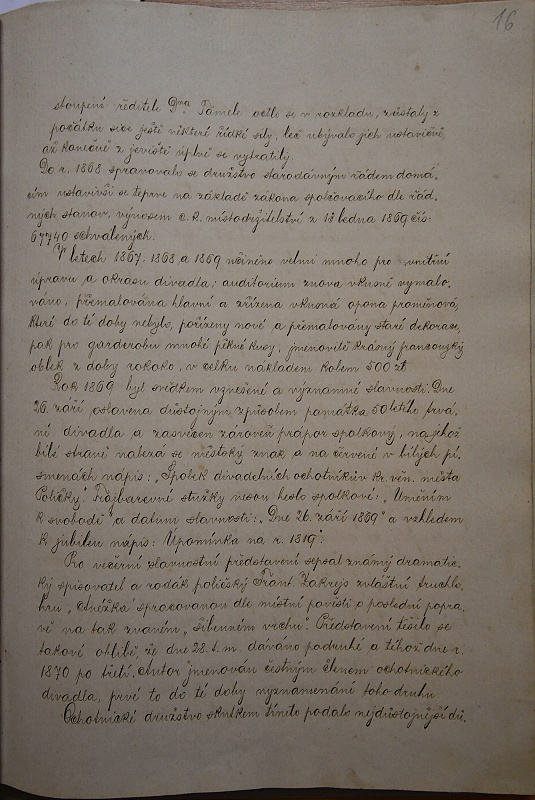 16
stoupení ředitele Dra Tämele octlo se v rozkladu, zůstaly z
počátku sice ještě některé řídké síly, leč ubývalo jich ustavičně,
až konečně z jeviště úplně se vytratily.
Do r. 1868 spravovalo se družstvo starodávným řádem domá-
cím ustavivši se teprve na základě zákona spolčovacího dle řád-
ných stanov, výnosem c. k. místodržitelství z 18 ledna 1869 čís:
67740 schválených.
V letech 1867. 1868 a 1869 učiněno velmi mnoho pro vnitřní
úpravu a okrasu divadla; auditorium znova vkusně vymalo-
váno, přemalována hlavní a zřízena vkusná opona proměnová,
které do té doby nebylo, pořízeny nové a přemalovány staré dekorace,
pak pro garderobu mnohé pěkné kusy, jmenovitě krásný francouzský
oblek z doby rokoko, v celku nákladem kolem 500 zł
Rok 1869 byl svědkem vznešené a významné slavnosti. Dne
26. září oslavena důstojným způsobem památka 50 letého trvá-
ní divadla a zasvěcen zároveň prápor spolkový, na jehož
bílé straně nalezá se městský znak a na červené v bílých pí-
smenách nápis: „Spolek divadelních ochotníkův kr. věn. města
Poličky". Trojbarevné stužky nesou heslo spolkové: „Uměním
k svobodě" a datum slavnosti: „Dne 26. září 1869" a vzhledem
k jubileu nápis: Upomínka na r. 1819".
Pro večerní slavnostní představení sepsal známý dramatic-
ký spisovatel a rodák poličský Frant. Zákrejs zvláštní truchlo-
hru „Anežka" spracovanou dle místní pověsti o poslední popra-
vě na tak zvaném „šibenném vrchu". Představení těšilo se
takové oblibě, že dne 28. t. m. dáváno podruhé a téhož dne r.
1870 po třetí. Autor jmenován čestným členem ochotnického
divadla, prvé to do té doby vyznamenání toho druhu.
Ochotnické družstvo skutkem tímto podalo nejdůstojnější dů-